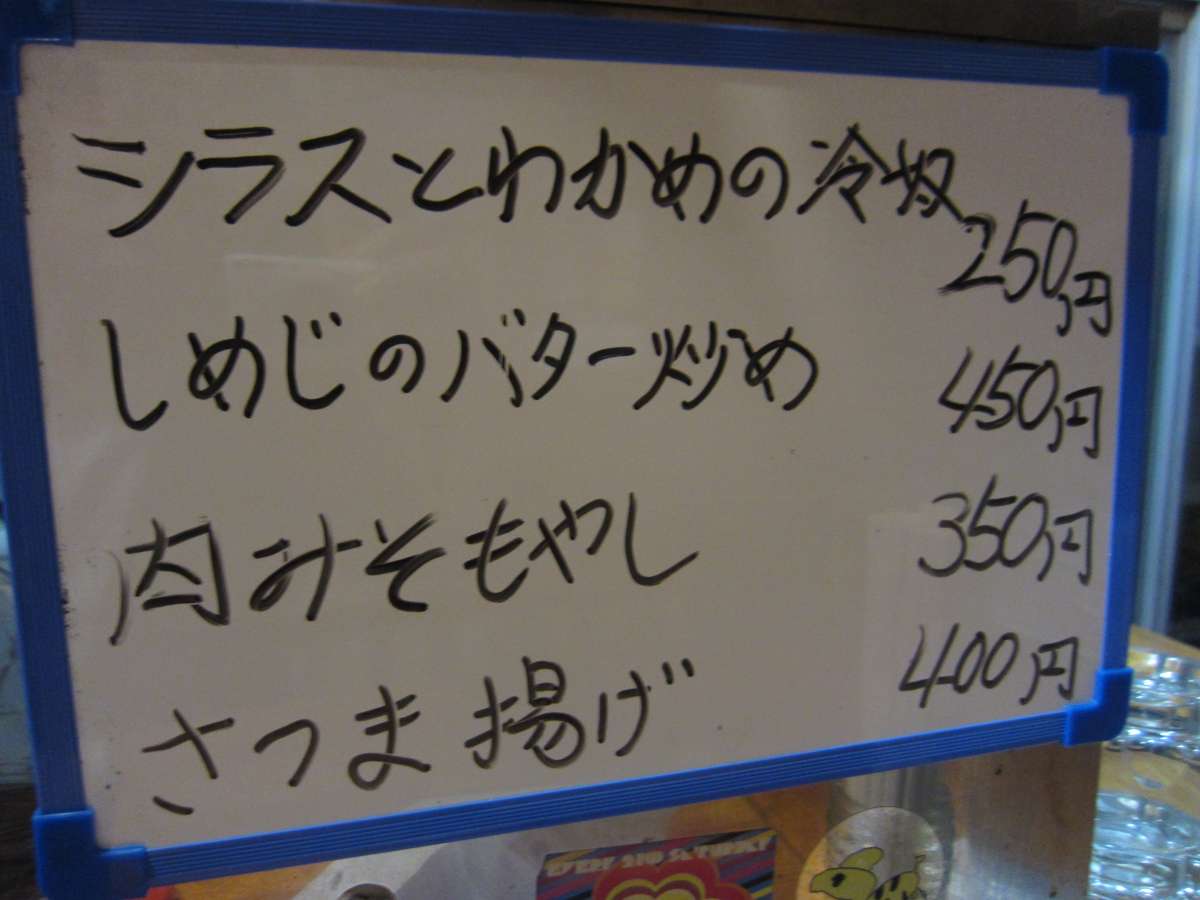 シラスとわかめの冷奴 250円
しめじのバター炒め 450円
肉みそもやし 350円
さつま揚げ 400円
EVERY 2ND SATURDAY